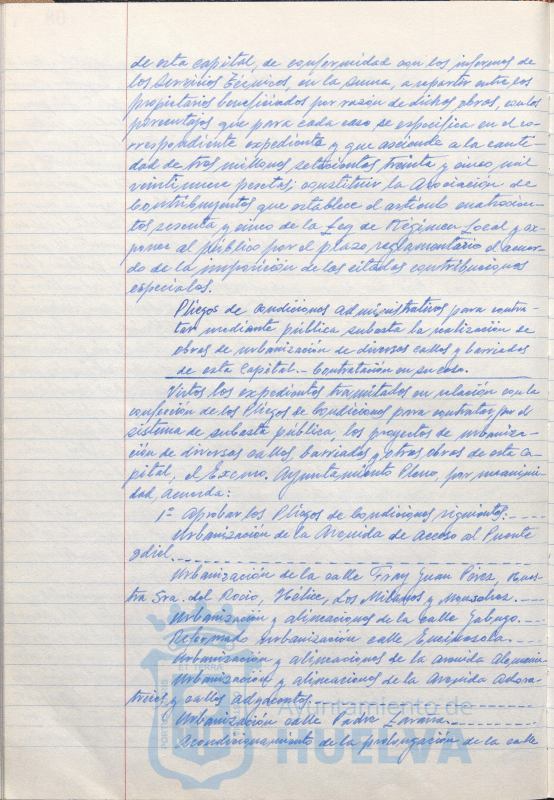 de esta capital, de conformidad con los informes de
los Servicios Técnicos, en la suma, a repartir entre los
propietarios beneficiados por razón de dichas obras, en los
porcentajes que para cada caso se especifica en el co-
rrespondiente expediente y que asciende a la canti-
dad de tres millones setecientas treinta y cinco mil
veintinueve pesetas; constituir la Asociación de
Contribuyentes que establece el artículo cuatrocien-
tos sesenta y cinco de la Ley de Régimen Local y ex-
poner al público por el plazo reglamentario el acuer-
do de la imposición de las citadas contribuciones
especiales.
Pliegos de condiciones administrativas para contra-
tar mediante pública subasta la realización de
obras de urbanización de diversas calles y barriadas
de esta Capital.- Contratación en su caso.
Vistos los expedientes tramitados en relación con la
confección de los Pliegos de Condiciones para contratar por el
sistema de subasta pública, los proyectos de urbaniza-
ción de diversas calles, barriadas y otras obras de esta ca-
pital, el Excmo. Ayuntamiento Pleno, por unanimi-
dad, acuerda:
1º Aprobar los Pliegos de Condiciones siguientes:
Urbanización de la Avenida de acceso al Puente
Odiel.
Urbanización de la calle Fray Juan Pérez, Nues-
tra Sra. del Rocío, Hélice, Los Milanos y
Urbanización y alineaciones de la calle Jabugo.
Reformado urbanización calle Encinasola.
Urbanización y alineaciones de la avenida Alemania
Urbanización y alineaciones de la Avenida Adora-
trices y calles adyacentes.
Urbanización calle Padre Laraña.
Acondicionamiento de la prolongación de la calle
Ayuntamiento de
HUELVA